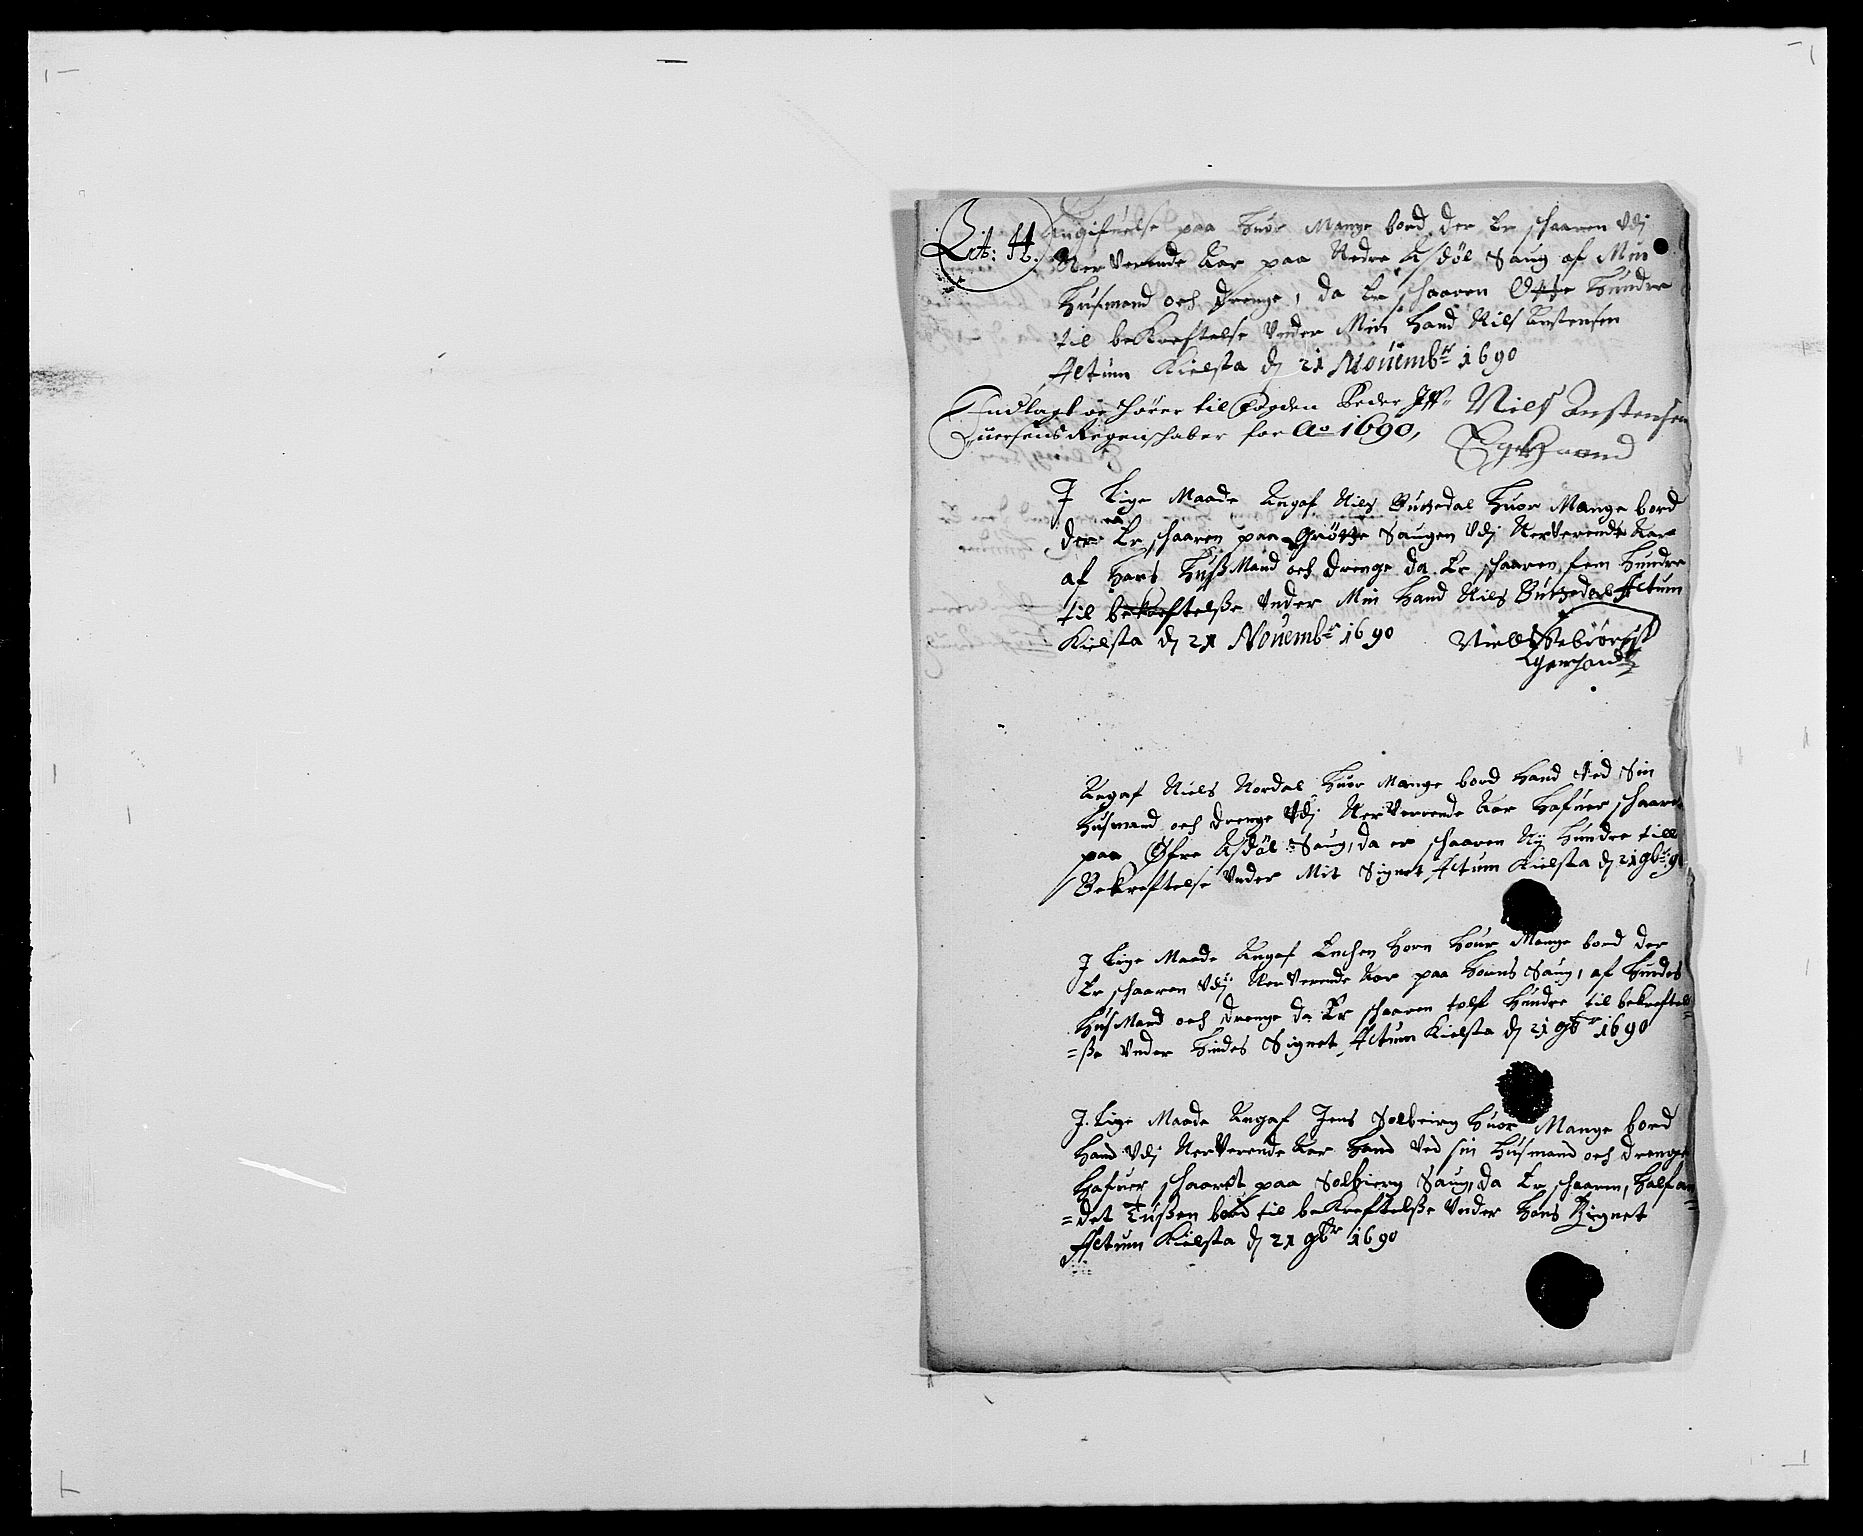 Lit: H.
Angifuelse paa huor Mange bord der Er schaaren Udj
NerVerende Aar paa Nedre Asdøl Saug af Min
Husmand och drenge, da Er schaaren Otte hundre
til bekreftelse Under Min Hand Nils Anstensen
Actum Kielsta dj 21 Nouembr 1690
Indlagt og hører til fogden Peder
Iffuersens Regenschaber for Ao 1690,
Niels Anstensen
Egehaand
J Lige Maade Angaf Nils Butzedal huor Mange bord
der Er schaaren paa Grøtte Saugen Udj NerVerende Aar
af hans HusMand och drenge da Er schaaren fem hundre
til bekreftelsse Under Min Hand Nils Butzedal Actum
Kielsta dj 21 Nouembr 1690
Niells
Egenhand
Angaf Niels Nordal huor Mange bord hand Ved Sin
Husmand och drenge Udj NerVerende Aar hafuer schaaren
paa Øfre Asdøl Saug, da er schaaren Nij hundre till
Bekreftelse Under Mit Signet, Actum Kielsta dj 21 9br 9
J Lige Maade Angaf Enchen Horn Huor Mange bord der
Er schaaren Udj NerVerende Aar paa Horns Saug, af hindes
HusMand och drenge da Er schaaren tolf hundre til bekreftel
=sse Under hindes Signet, Actum Kielsta dj 21 9br 1690
J Lige Maade Angaf Jens Solbierg huor Mange bord
Hand Udj NerVerende Aar hand Ved sin Husmand och drenge
hafuer schaaret paa Solbierg Saug, da Er schaaren, half an=
=det Tussen bord til bekreftelsse Under hans Signet
Actum Kielsta dj 21 9br 1690